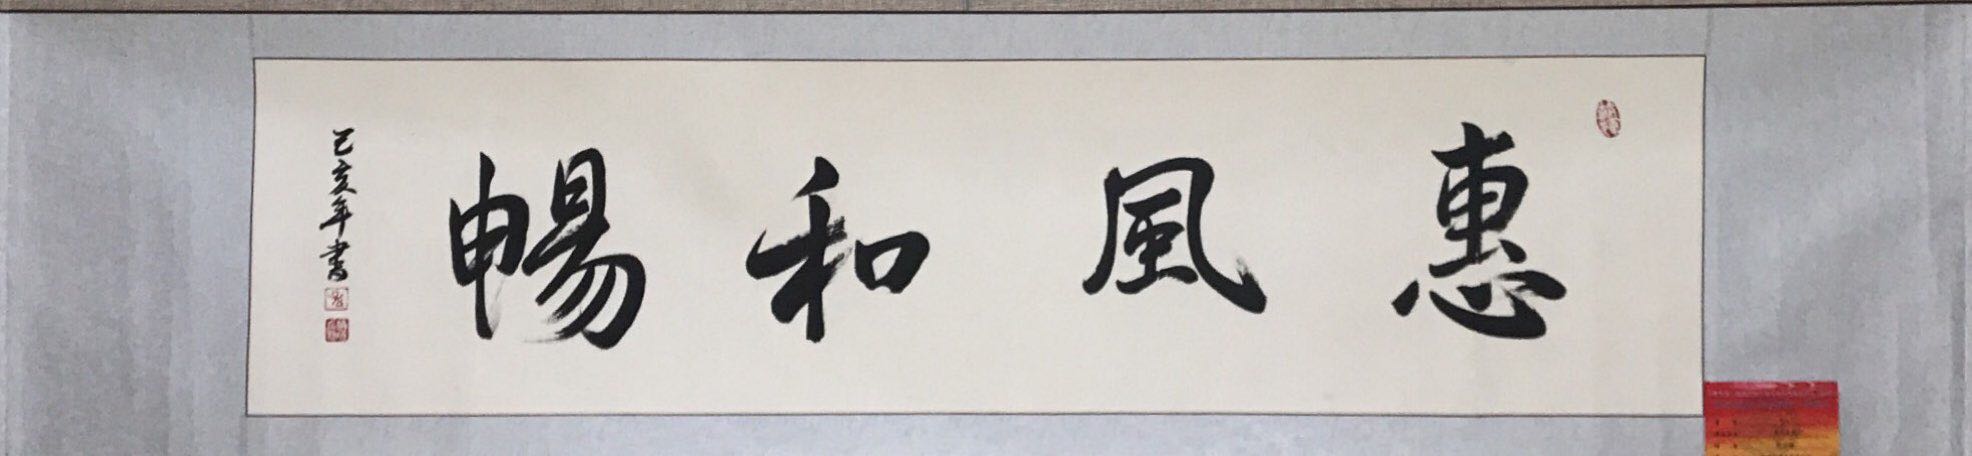 惠風和暢
己亥年書